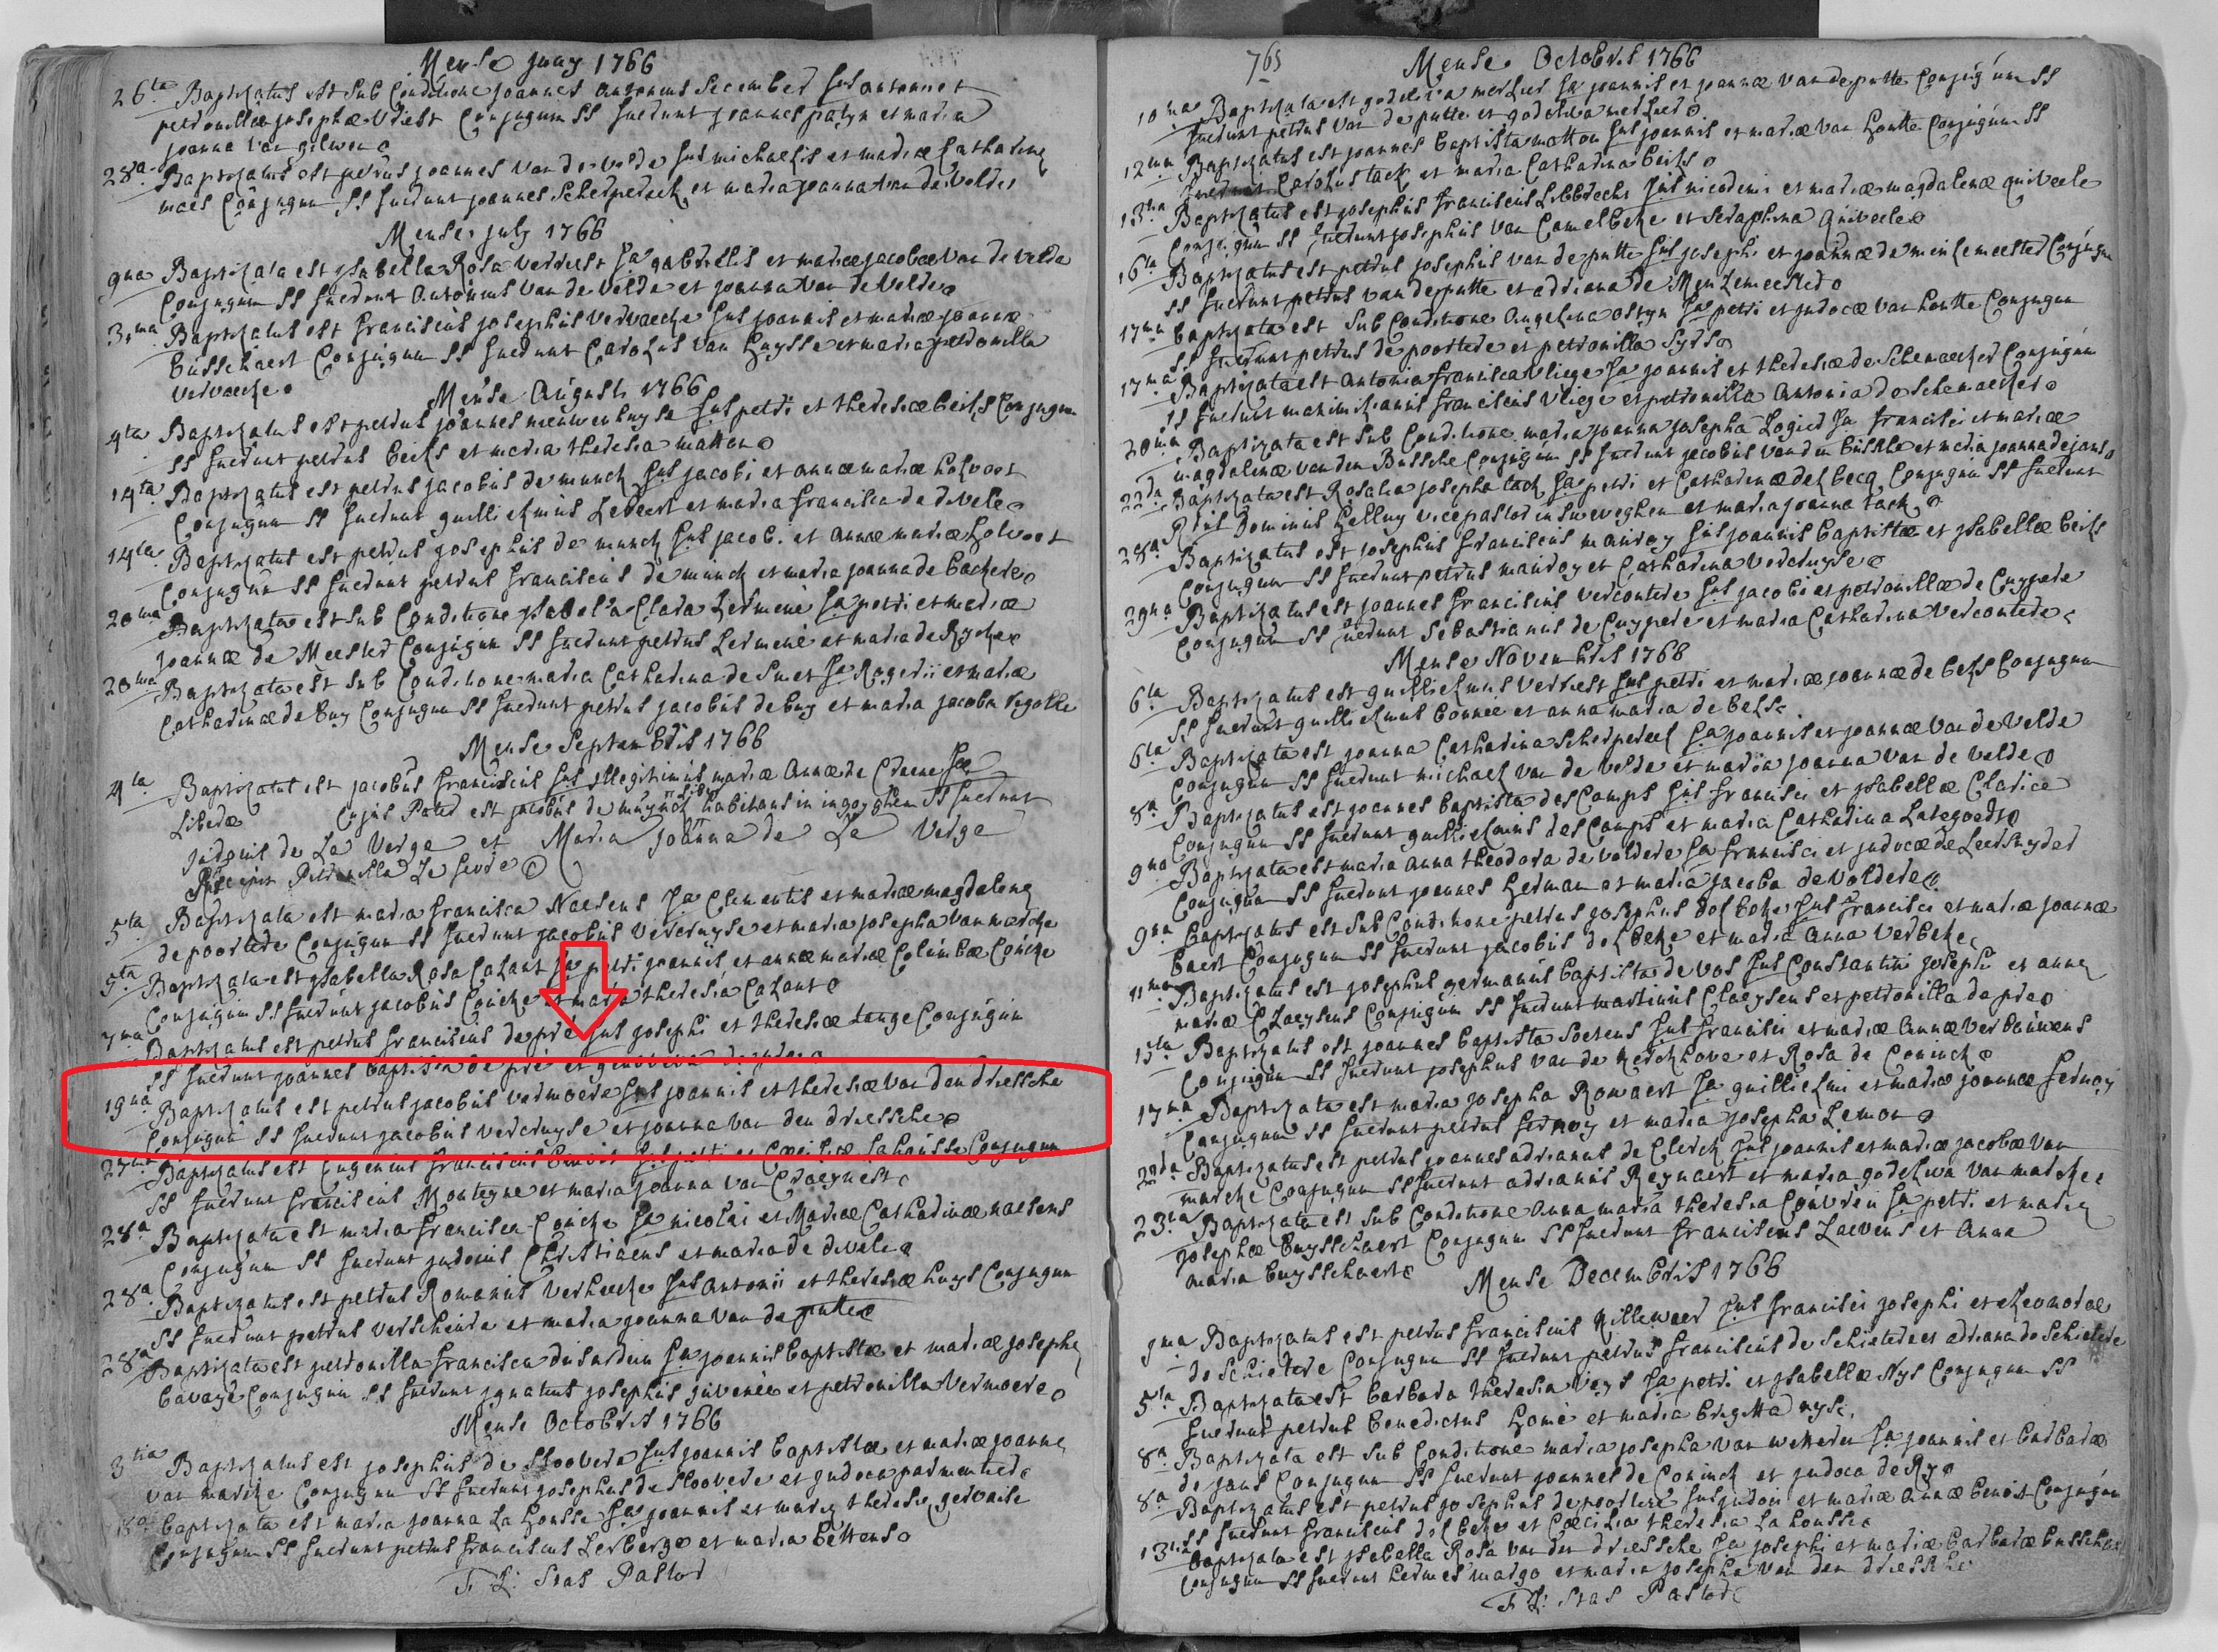 Mense Juny 1766
26ta Baptizatus est sub Conditione joannes antonius December fus antonii et
petronillæ josephæ Vdiest Conjugum SS fuerunt joannes patyn et maria
joanna Van gilwe
28a Baptizatus est petrus joannes van de velde fus michaelis et mariæ Catharinę
maes Conjugum SS fuerunt joannes Scherpereel et maria joanna Van de Velde
Mense july 1766
9na Baptizata est ysabella Rosa Verriest fa gabrielis et mariæ jacobæ Van de Velde
Conjugum SS fuerunt Antonius Van de Velde et joanna Van de Velde
31ma Baptizatus est franciscus josephus Vervaecke fus joannis et mariæ joannæ
Busschaert Conjugum SS fuerunt Carolus Van Huysse et maria petronilla
Vervaecke
Mense Augusti 1766
4ta Baptizatus est petrus joannes nieuwenhuyse fus petri et theresiæ beils Conjugum
SS fuerunt petrus beils et maria theresia matton
14ta Baptizatus est petrus jacobus de munck fus jacobi et annæ mariæ holvoet
Conjugum SS fuerunt guillielmus Leveert et maria francisca de divele
14ta Baptizatus est petrus josephus de munck fus jacobi et annæ mariæ holvoet
Conjugum SS fuerunt petrus franciscus de munck et maria joanna de backere
20ma Baptizata est sub Conditione ysabella Clara Lermenè fa petri et mariæ
joannæ de Meester Conjugum SS fuerunt petrus Lermenè et maria de Rycke
20ma Baptizata est sub Conditione maria Catharina de Smet fa Rogerii et mariæ
Catharinæ de buy Conjugum SS fuerunt petrus jacobus de buy et maria jacoba Vigolle
Mense Septembris 1766
4ta Baptizatus est jacobus franciscus fus illegitimus mariæ Annæ de Craene fæ
Liberæ Cujus Pater est jacobus de muynck habitans in ingoyghem SS fuerunt
judocus de La Verge et Maria joanna de La Verge
Recepit Petronilla Le fevre
5ta Baptizata est maria francisca Naesens fa Clementis et mariæ magdalenę
de poortere Conjugum SS fuerunt jacobus Vercruyse et maria josepha Van marcke
5ta Baptizata est ysabella Rosa Cahant fa petri joannis et annæ mariæ Columbæ Coucke
Conjugum SS fuerunt jacobus Coucke et maria theresia Cahant
7ma Baptizatus est petrus franciscus de pré fus josephi et theresiæ tange Conjugum
SS fuerunt joannes baptista de pré et genoveva
19na Baptizatus est petrus jacobus vermoere fus joannis et theresiæ Van den driessche
Conjugum SS fuerunt jacobus vercruyse et joanna Van den driessche
27ma Baptizatus est Eugenius franciscus benoit fus petri et Cæciliæ Lahousse Conjugum
SS fuerunt franciscus Montegne et maria joanna Van Craeynest
28a Baptizata est maria francisca Coucke fa nicolai et Mariæ Catharinæ naesens
Conjugum SS fuerunt judocus Christiaens et maria de divele
28a Baptizatus est petrus Romanus Verheecke fus Antonii et theresiæ huys Conjugum
SS fuerunt petrus Verscheure et maria joanna Van de putte
28a Baptizata est petronilla francisca dusardein fa joannis baptistæ et mariæ josephę
bavaye Conjugum SS fuerunt ignatius josephus juvenèe et petronilla Vermoere
Mense Octobris 1766
3tia Baptizatus est josephus de Sloovere fus joannis baptistæ et mariæ joannę
Van marcke Conjugum SS fuerunt josephus de Sloovere et judoca parmentier
baptizata est maria joanna La housse fa joannis et mariæ theresię gervaise
Conjugum SS fuerunt petrus franciscus Lerberge et maria bettens
F. L: Stas Pastor
765
Mense Octobris 1766
10ma Baptizata est godeliva merlier fa joannis et joannæ Van de putte Conjugum SS
fuerunt petrus Van de putte et godeliva merlier
12ma Baptizatus est joannes baptista matton fus joannis et mariæ Van houtte Conjugum SS
fuerunt Carolus tack et maria Catharina beils
13tia Baptizatus est josephus franciscus Libbrecht fus nicodemi et mariæ magdalenæ quivcele
Conjugum SS fuerunt josephus Van Camelbeke et Seraphina Quivcele
16ta Baptizatus est petrus josephus van de putte fus josephi et joannæ de meulemeester Conjugum
SS fuerunt petrus van de putte et adriana de Meulemeester
17ma baptizata est sub Conditione Angelina ostyn fa petri et judocæ Van houtte Conjugum
SS fuerunt petrus de poortere et petronilla Syrs
17ma Baptizata est Antonia francisca Vliege fa joannis et theresiæ de Schemaecker Conjugum
SS fuerunt maximilianus franciscus Vliege et petronilla Antonia de Schemaecker
20ma Baptizata est sub Conditione maria joanna josepha Logier fa francisci et mariæ
magdalenæ van den Bussche Conjugum SS fuerunt jacobus Van den bussche et maria joanna de jans
22da Baptizata est Rosalia josepha tack fa petri et Catharinæ delbecq Conjugum SS fuerunt
Rdus Dominus Helluy vice pastor in Sweveghem et maria joanna tack
28a Baptizatus est josephus franciscus manroy fus joannis baptistæ et ysabellæ beils
Conjugum SS fuerunt petrus manroy et Catharina Vercruyse
29na Baptizatus est joannes franciscus Vercontere fus jacobi et petronillæ de Cuypere
Conjugum SS fuerunt Sebastianus de Cuypere et maria Catharina Vercontere
Mense Novembris 1766
6ta Baptizatus est guillielmus Verriest fus petri et mariæ joannæ de bels Conjugum
SS fuerunt guillielmus bonnee et anna maria de bels
6ta Baptizata est joanna Catharina Scherpereel fa joannis et joannæ Van de Velde
Conjugum SS fuerunt michael van de velde et maria joanna van de velde
8a Baptizatus est joannes baptista desCamps fus francisci et ysabellæ Clarice
Conjugum SS fuerunt guillielmus desCamps et maria Catharina Lategoedt
9na Baptizata est maria anna theodora de Voldere fa francisci et judocæ de Leersnyder
Conjugum SS fuerunt joannes herman et maria jacoba de Voldere
9na baptizatus est sub Conditione petrus josephus dolbeke fus francisci et mariæ joannæ
baert Conjugum SS fuerunt jacobus dolbeke et maria Anna Verbeke
11ma Baptizatus est josephus germanus baptista de Vos fus Constantini josephi et annę
mariæ Claeysens Conjugum SS fuerunt martinus Claeysens et petronilla de pré
15ta Baptizatus est joannes baptista Soetens fus francisci et mariæ Annæ Verbauwens
Conjugum SS fuerunt josephus Van de Kerckhove et Rosa de Coninck
17ma Baptizata est maria josepha Romaert fa guillielmi et mariæ joannæ fernoy
Conjugum SS fuerunt petrus fernoy et maria josepha Lemon
22da Baptizatus est petrus joannes adrianus de Clerck fus joannis et mariæ jacobæ Van
marcke Conjugum SS fuerunt adrianus Reynaert et maria godeliva Van marcke
23tia Baptizata est sub Conditione Anna maria theresia Couvreu fa petri et marię
josephæ buysschaert Conjugum SS fuerunt franciscus Laevens et Anna
maria buysschaert
Mense Decembris 1766
Baptizatus est petrus franciscus Killewaer fus francisci josephi et eleonoræ
de Schietere Conjugum SS fuerunt petrus franciscus de Schietere et adriana de Schietere
5ta Baptizata est barbara theresia Veys fa petri et ysabellæ Nys Conjugum SS
fuerunt petrus benedictus Homé et maria brigitta nys
8a Baptizata est sub Conditione maria josepha Van Wetteren fa joannis et barbaræ
de jans Conjugum SS fuerunt joannes de Coninck et judoca de Ry
8a Baptizatus est petrus josephus de poortere fus judoci et mariæ Annæ benoit Conjugum
SS fuerunt franciscus dolbeke et Cæcilia theresia La housse
13tia baptizata est ysabella Rosa Van den driessche fa josephi et mariæ barbaræ busschaert
Conjugum SS fuerunt hermes margo et maria josepha Van den driessche
F. L: Stas Pastor